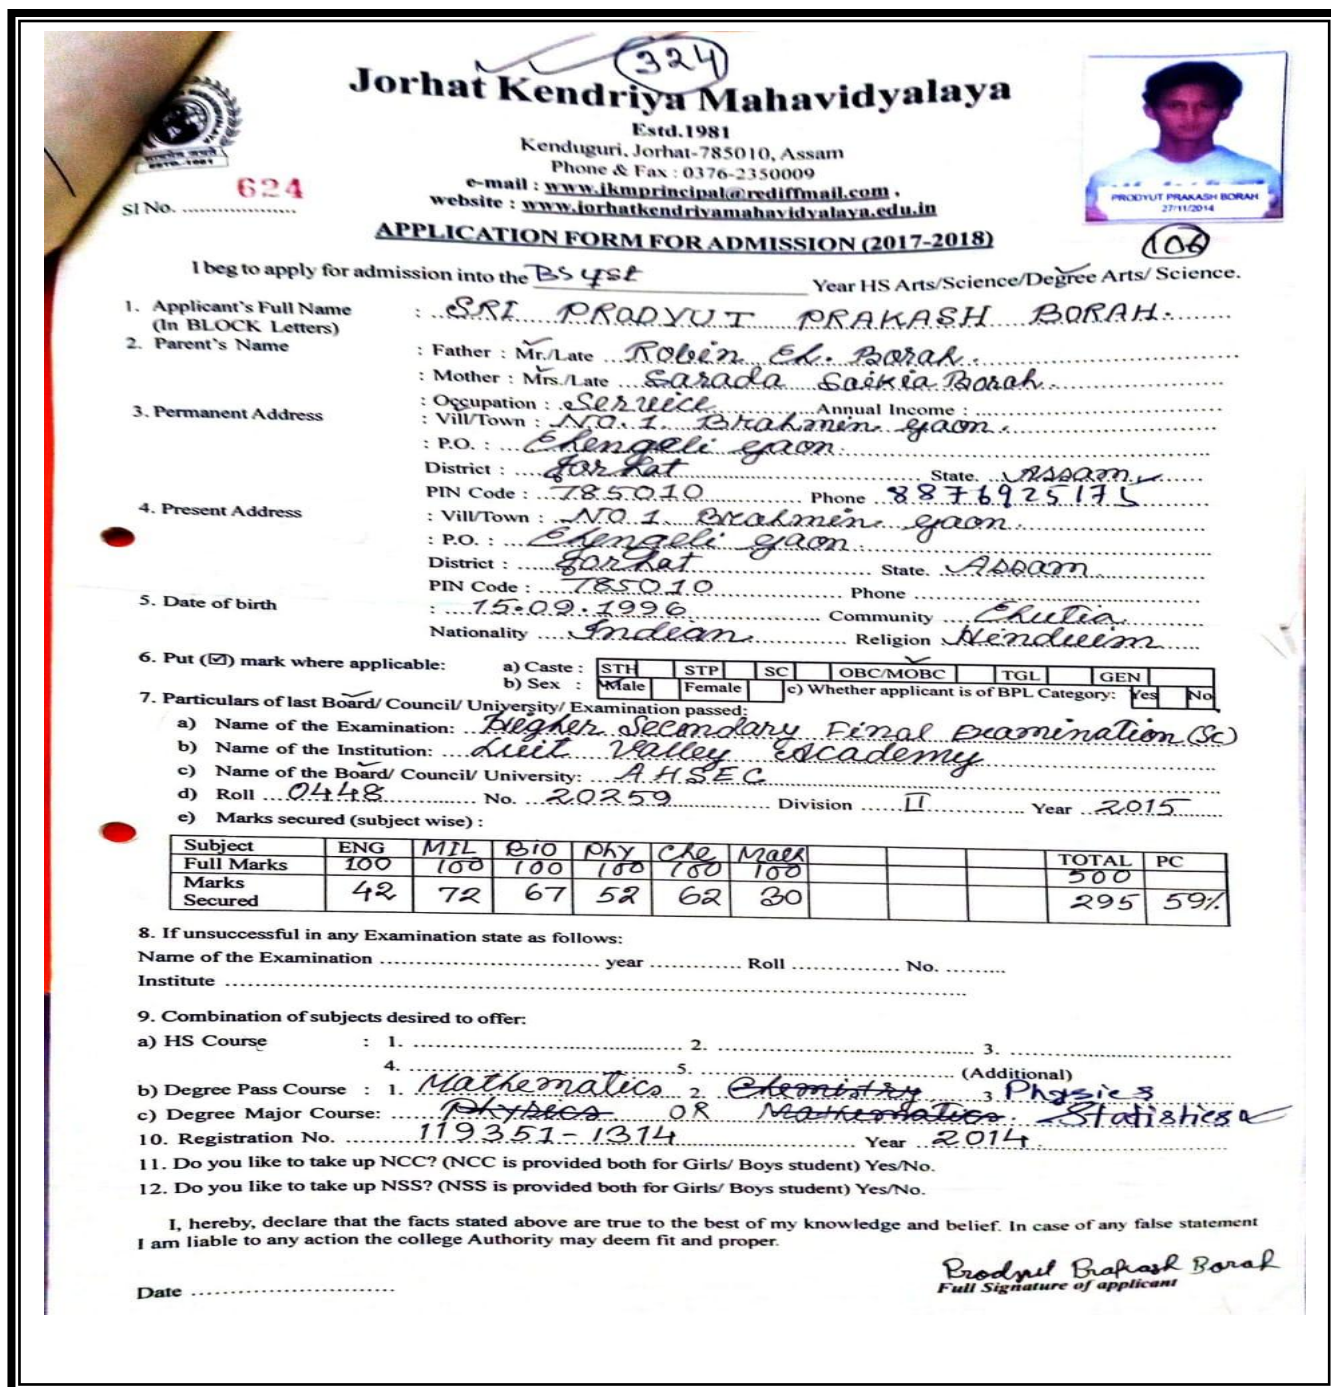 324
Jorhat Kendriya Mahavidyalaya
Estd.1981
Kenduguri, Jorhat-785010, Assam
Phone & Fax : 0376-2350009
e-mail : www.jkmprincipal@rediffmail.com ,
website : www.jorhatkendriyamahavidyalaya.edu.in
ESTD.-1981
Sl No. 624
PRODYUT PRAKASH BORAH
27/11/2014
APPLICATION FORM FOR ADMISSION (2017-2018)
106
I beg to apply for admission into the Year HS Arts/Science/Degree Arts/ Science.
1. Applicant's Full Name : SRI PRODYUT PRAKASH BORAH.
(In BLOCK Letters)
2. Parent's Name : Father : Mr./Late Robin Ch. Borah.
: Mother : Mrs./Late Sarada Saikia Borah.
: Occupation : Service Annual Income :
3. Permanent Address : Vill/Town : NO. 1. Brahmin gaon.
: P.O. : Chengeli gaon.
District : Jorhat State. Assam
PIN Code : 785010 Phone 8876925175
4. Present Address : Vill/Town : NO 1. Brahmin gaon.
: P.O. : Chengeli gaon.
District : Jorhat State. Assam
PIN Code : 785010 Phone
5. Date of birth : 15.09.1996 Community Chutia
Nationality Indian Religion Hinduim
6. Put (☑) mark where applicable: a) Caste : STH STP SC OBC/MOBC TGL GEN
b) Sex : Male Female c) Whether applicant is of BPL Category: Yes No
7. Particulars of last Board/ Council/ University/ Examination passed:
a) Name of the Examination: Higher Secondary Final Examination (Sc)
b) Name of the Institution: Luit Valley Academy
c) Name of the Board/ Council/ University: AHSEC
d) Roll 0448 No. 20259 Division II Year 2015
e) Marks secured (subject wise) :
Subject ENG MIL BIO Phy Che Math TOTAL PC
Full Marks 100 100 100 100 100 100 500
Marks Secured 42 72 67 52 62 30 295 59%
8. If unsuccessful in any Examination state as follows:
Name of the Examination year Roll No.
Institute
9. Combination of subjects desired to offer:
a) HS Course : 1. 2. 3.
4. 5. (Additional)
b) Degree Pass Course : 1. Mathematics 2. Chemistry 3. Physics
c) Degree Major Course: Physics OR Mathematics. Statistics
10. Registration No. 119351-1314 Year 2014
11. Do you like to take up NCC? (NCC is provided both for Girls/ Boys student) Yes/No.
12. Do you like to take up NSS? (NSS is provided both for Girls/ Boys student) Yes/No.
I, hereby, declare that the facts stated above are true to the best of my knowledge and belief. In case of any false statement
I am liable to any action the college Authority may deem fit and proper.
Prodyut Prakash Borah
Date Full Signature of applicant